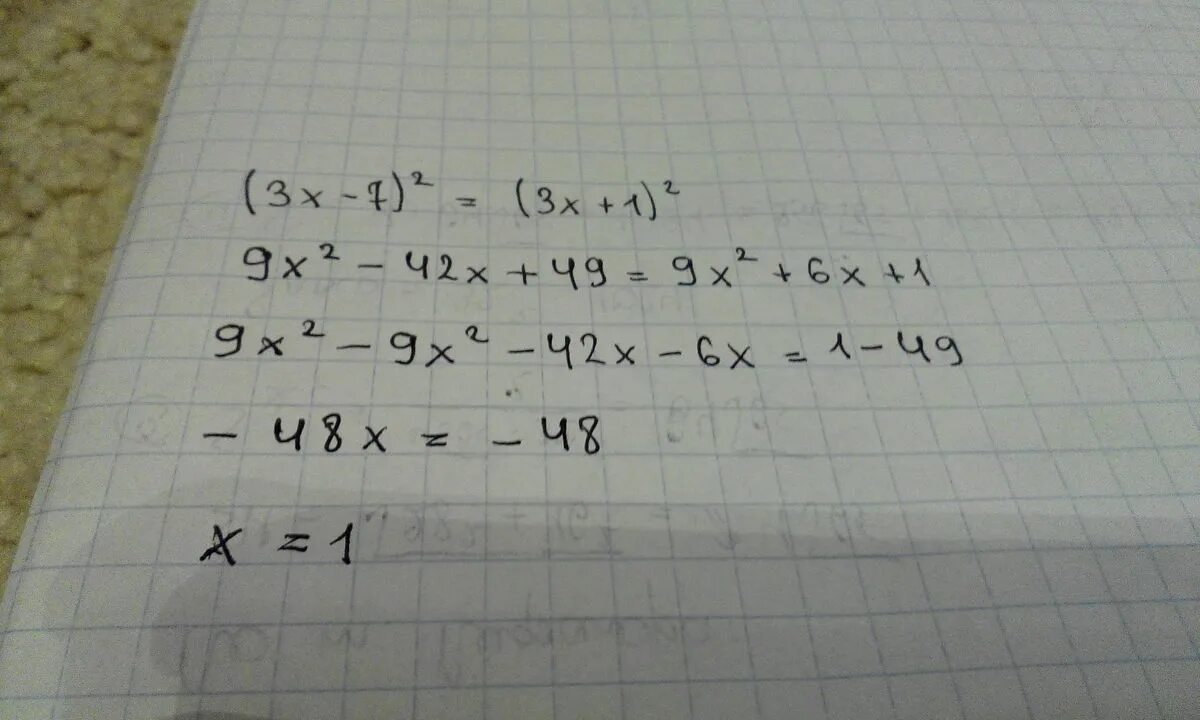 (3x - 7)² = (3x + 1)²
9x² - 42x + 49 = 9x² + 6x + 1
9x² - 9x² - 42x - 6x = 1 - 49
- 48x = - 48
x = 1